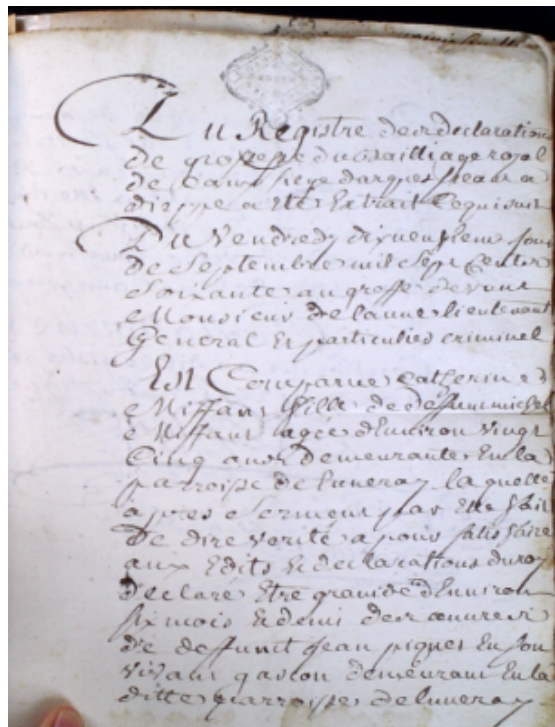 Du Registre des declarations
de grossesse du Bailliage royal
de Caux siege darques seant a
dieppe a ete Extrait Ce qui suit
Du Vendredy dixneufieme Jour
de Septembre mil Sept Cents
Soixante au greffe devant
Monsieur lieutenant
General Et particulier criminel
Est Comparue Catherine
Miffant fille de deffunt michel
Miffant agée dEnviron Vingt
Cinq ans demeurante En la
parroisse de luneray laquelle
apres Serment par Elle fait
De dire verité a pour satisfaire
aux Edits & declarations du roy
declaré Etre grande dEnviron
six mois & demi des œuvres
de deffunt jean piques En son
vivant garcon demeurant En la
ditte parroisse de luneray